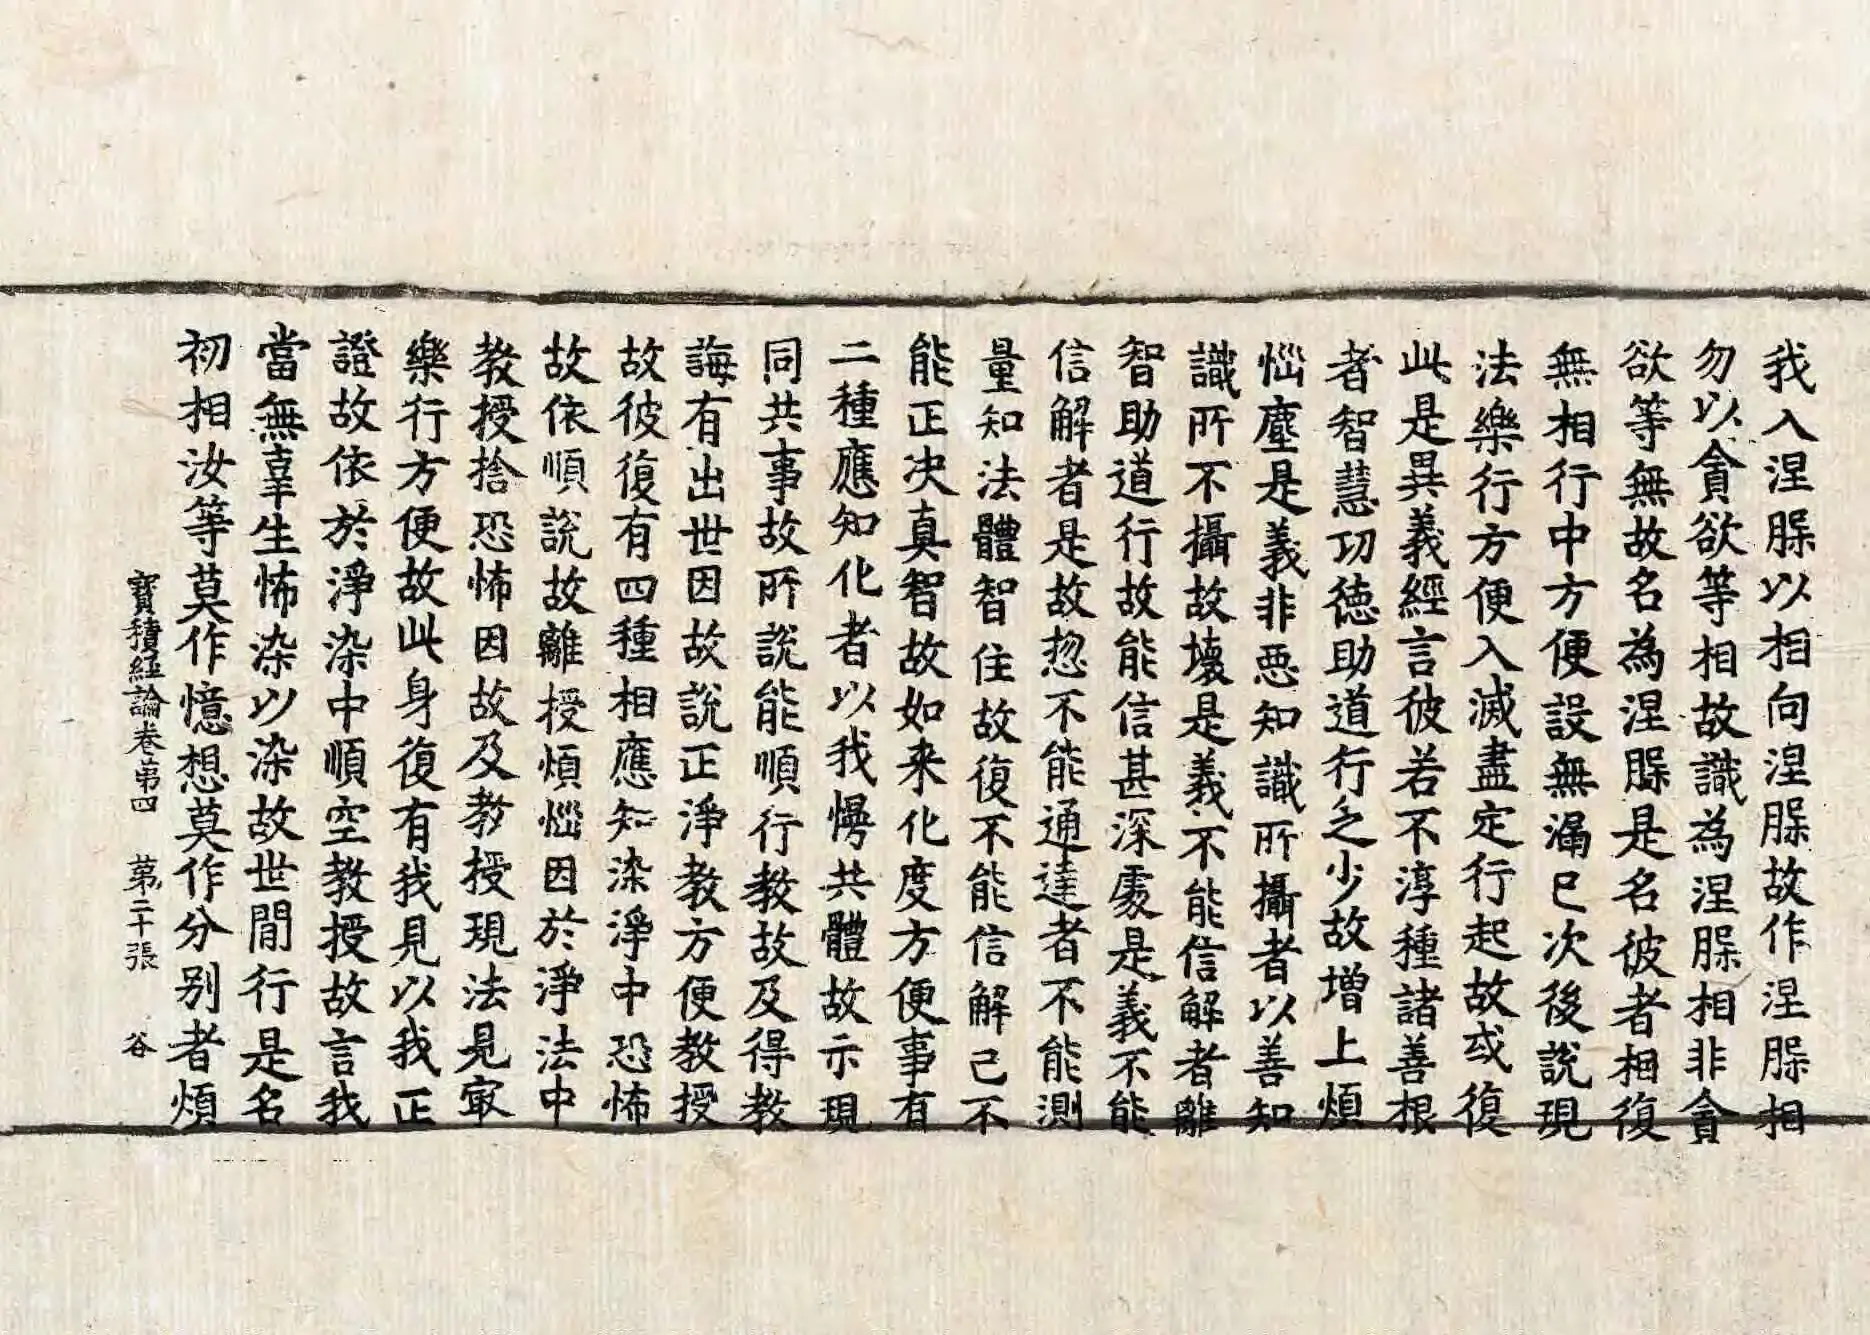 我入涅槃以相向涅槃故作涅槃相
勿以貪欲等相故識為涅槃相非貪
欲等無故名為涅槃是名彼者相復
無相行中方便設無漏已次後說現
法樂行方便入滅盡定行起故或復
此是異義經言彼若不淳種諸善根
者智慧功德助道行乏少故增上煩
惱塵是義非惡知識所攝者以善知
識所不攝故壞是義不能信解者離
智助道行故能信甚深處是義不能
信解者是故忽不能通達者不能測
量知法體智住故復不能信解己不
能正决真智故如来化度方便事有
二種應知化者以我慢共體故示現
同共事故所說能順行教故及得教
誨有出世因故說正淨教方便教授
故彼復有四種相應知染淨中恐怖
故依順說故離授煩惱因於淨法中
教授捨恐怖因故及教授現法見寂
樂行方便故此身復有我見以我正
證故依於淨染中順空教授故言我
當無幸生怖染以染故世間行是名
初相汝等莫作憶想莫作分别者煩
寶積經論卷第四　第二十張　谷